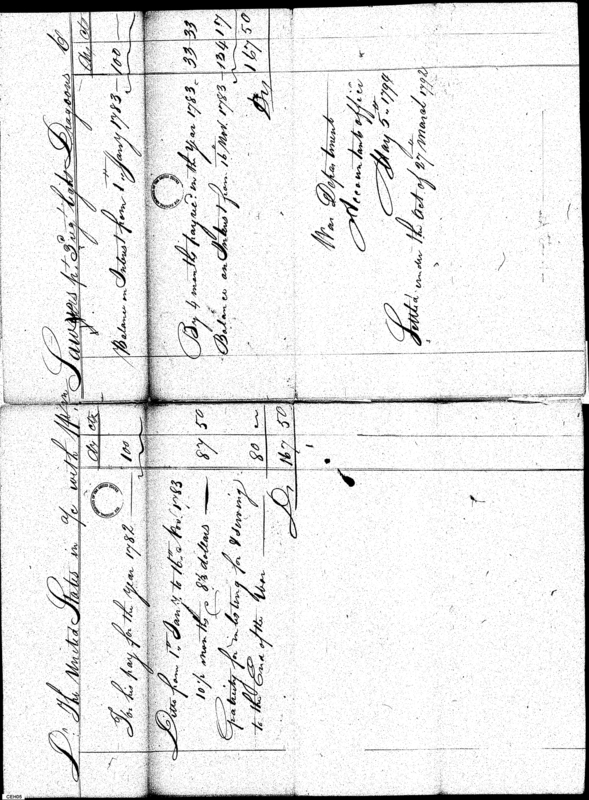 Dr The United States in a/c with Wm
Drs cts
To his pay for the Year 1782 100
Ditto from 1st Jany to 16th Novr 1783
10½ months 8⅓ dollars 87 50
Gratuity for inlisting for & serving
to the End of the War 80
Drs 167 50
Sawyers pt 2nd light Dragoons Cr
Drs cts
Balance on Interest from 1st Jany 1783 100
By 4 months pay recd in the Year 1783 33 33
Balance on Interest from 16 Novr 1783 134 17
Drs 167 50
War Department
Accountants office
May 5th 1794
Settled under the Act of 27 March 1792
CEH09